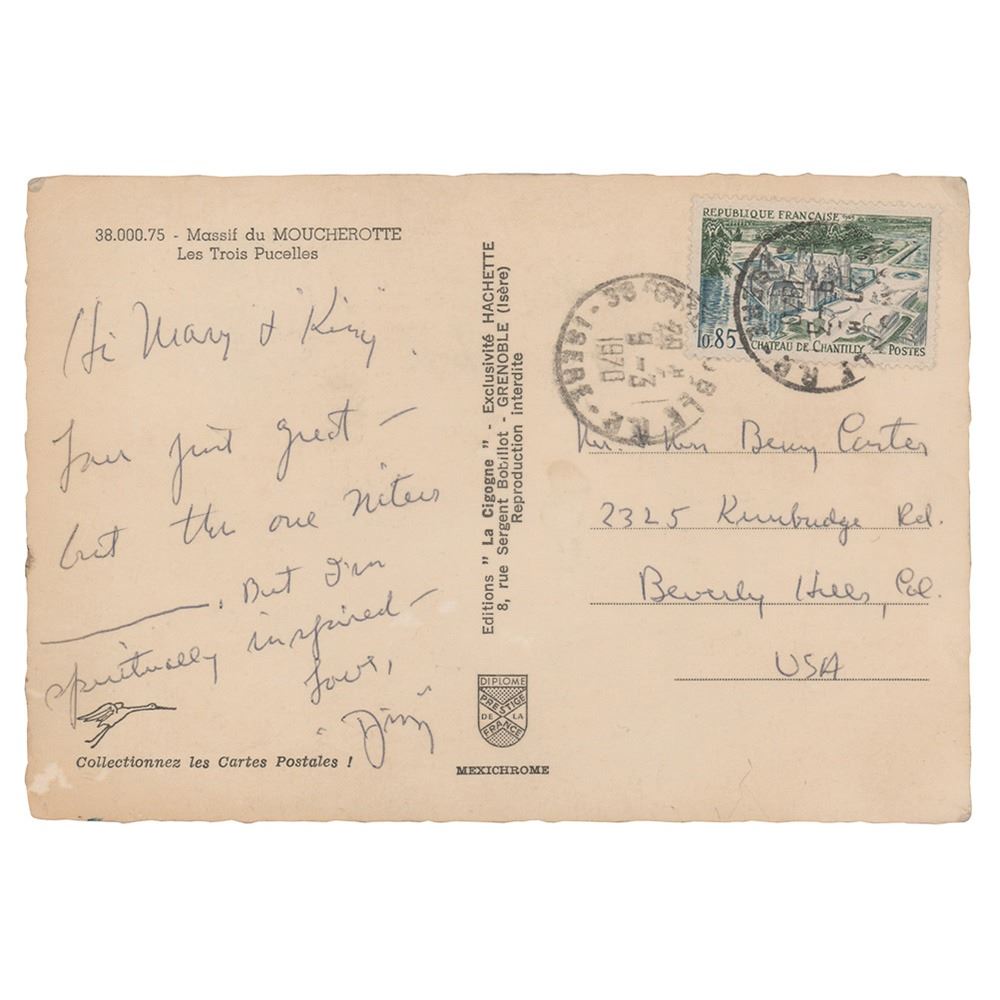 38.000.75 - Massif du MOUCHEROTTE
Les Trois Pucelles
Hi Mary & King
Tour just great –
but the one niters
. But I'm
spiritually inspired –
Love,
"Diz"
Collectionnez les Cartes Postales !
Editions " La Cigogne " - Exclusivité HACHETTE
8, rue Sergent Bobillot - GRENOBLE (Isère)
Reproduction interdite
DIPLOME
PRESTIGE
DE LA
FRANCE
MEXICHROME
REPUBLIQUE FRANÇAISE
0,85
CHATEAU DE CHANTILLY
POSTES
38
R.P. ISERE
9-3
1970
Mr. & Mrs Benny Carter
2325 Kimbridge Rd.
Beverly Hills, Cal.
USA